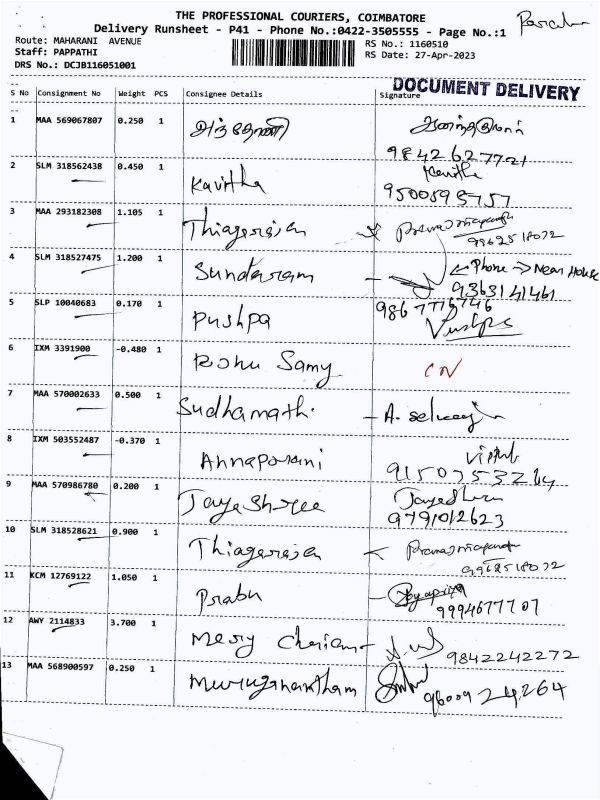 THE PROFESSIONAL COURIERS, COIMBATORE
Delivery Runsheet - P41 - Phone No.:0422-3505555 - Page No.:1
Route: MAHARANI AVENUE
RS No.: 1160510
Staff: PAPPATHI
RS Date: 27-Apr-2023
DRS No.: DCJB116051001
DOCUMENT DELIVERY
S No Consignment No Weight PCS Consignee Details Signature
1 MAA 569067807 0.250 1 அந்தோணி
9842627721
2 SLM 318562438 0.450 1 Kavitha Kavitha
9500595757
3 MAA 293182308 1.105 1 Thiagarajan
9962518072
4 SLM 318527475 1.200 1 Sundaram
Phone → Near House
9363141461
5 SLP 10040683 0.170 1 Pushpa
9867776746
Pushpa
6 IXM 3391900 -0.480 1 Samy CN
7 MAA 570002633 0.500 1 Sudhamathi - A.
8 IXM 503552487 -0.370 1 Annaporani
9 MAA 570986780 0.200 1 Jayashree Jayashree
9791012623
10 SLM 318528621 0.900 1 Thiagarajan
9962518072
11 KCM 12769122 1.050 1 Prabu
9994677707
12 AWY 2114833 3.700 1 Mery
9842242272
13 MAA 568900597 0.250 1 Muruganantham
9600924264